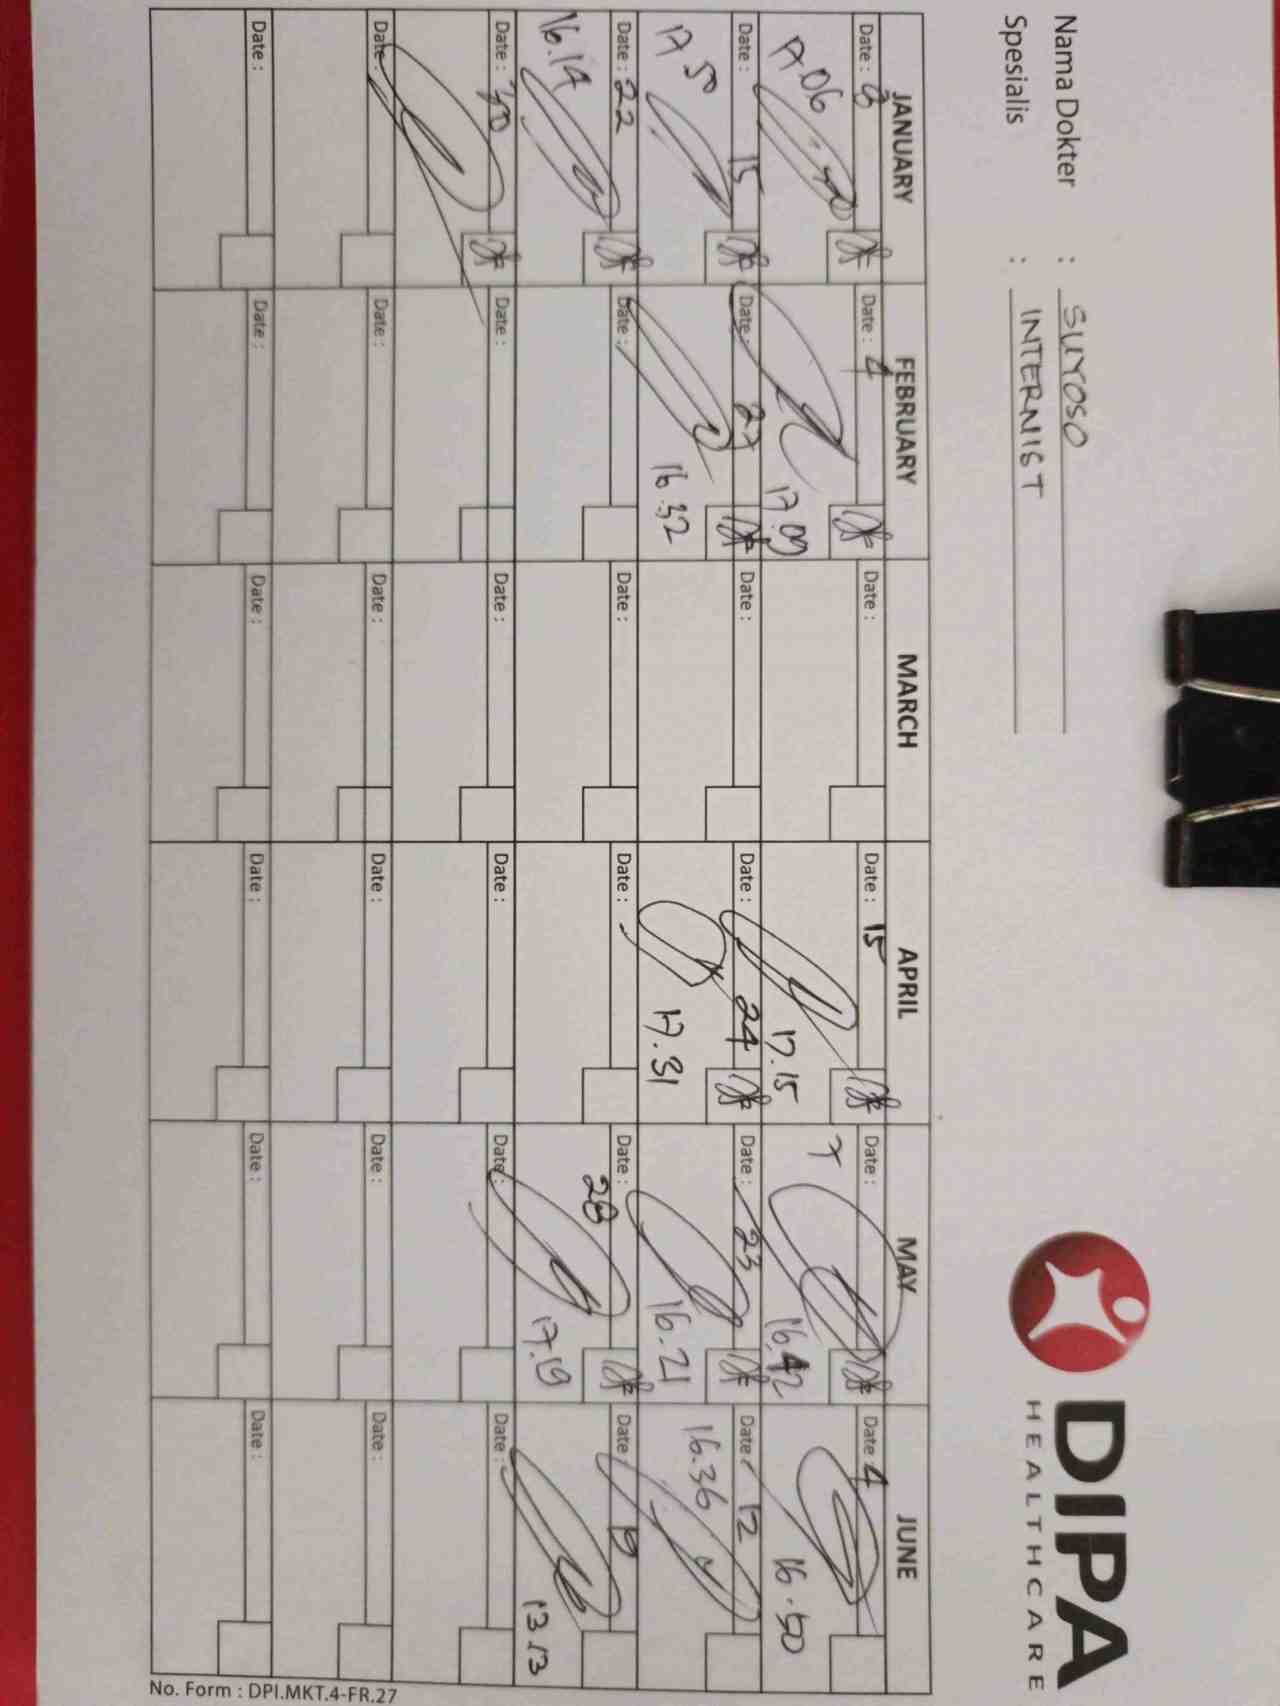 Nama Dokter : SUYOSO
Spesialis : INTERNIST
DIPA
HEALTHCARE
JANUARY FEBRUARY MARCH APRIL MAY JUNE
Date : Date : 4 Date : Date : 15 Date : 7 Date : 4
17.06 17.09 17.15 16.42 16.50
Date : 15 Date : 27 Date : Date : 24 Date : 23 Date : 12
17 50 16.32 17.31 16.21 16.36
Date : 22 Date : Date : Date : Date : 28 Date : 19
16.14 17.19 13.13
Date : 30 Date : Date : Date : Date : Date :
Date : Date : Date : Date : Date : Date :
Date : Date : Date : Date : Date : Date :
No. Form : DPI.MKT.4-FR.27